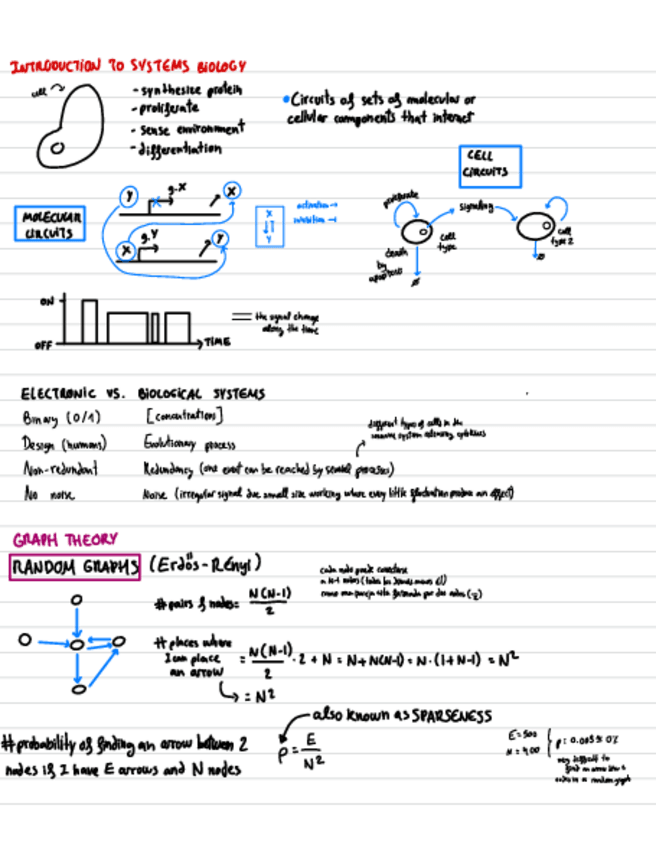 INTRODUCTION TO SYSTEMS BIOLOGY
cell
- synthesize protein
- proliferate
- sense environment
- differentiation
• Circuits of sets of molecular or
cellular components that interact
CELL
CIRCUITS
MOLECULAR
CIRCUITS
Y
g.X
X
X
g.Y
Y
X
Y
activation →
inhibition ⊣
proliferate
signaling
cell
type
cell
type 2
death
by
apoptosis
ø
ø
ON
OFF
TIME
the signal change
along the time
ELECTRONIC VS. BIOLOGICAL SYSTEMS
Binary (0/1) [concentrations]
Design (humans) Evolutionary process
different types of cells in the
immune system cytokines
Non-redundant Redundancy (one event can be reached by several processes)
No noise Noise (irregular signal due small size working where every little fluctuation produce an effect)
GRAPH THEORY
RANDOM GRAPHS (Erdös-Rényi)
cada nodo puede conectarse
a N-1 nodos (todos los demás menos él)
como una pareja está formada por dos nodos (2)
# pairs of nodes = N(N-1)/2
# places where
I can place
an arrow
= N(N-1)/2 · 2 + N = N + N(N-1) = N · (1+N-1) = N²
↳ = N²
also known as SPARSENESS
# probability of finding an arrow between 2
nodes if I have E arrows and N nodes
p = E/N²
E = 500
very difficult to